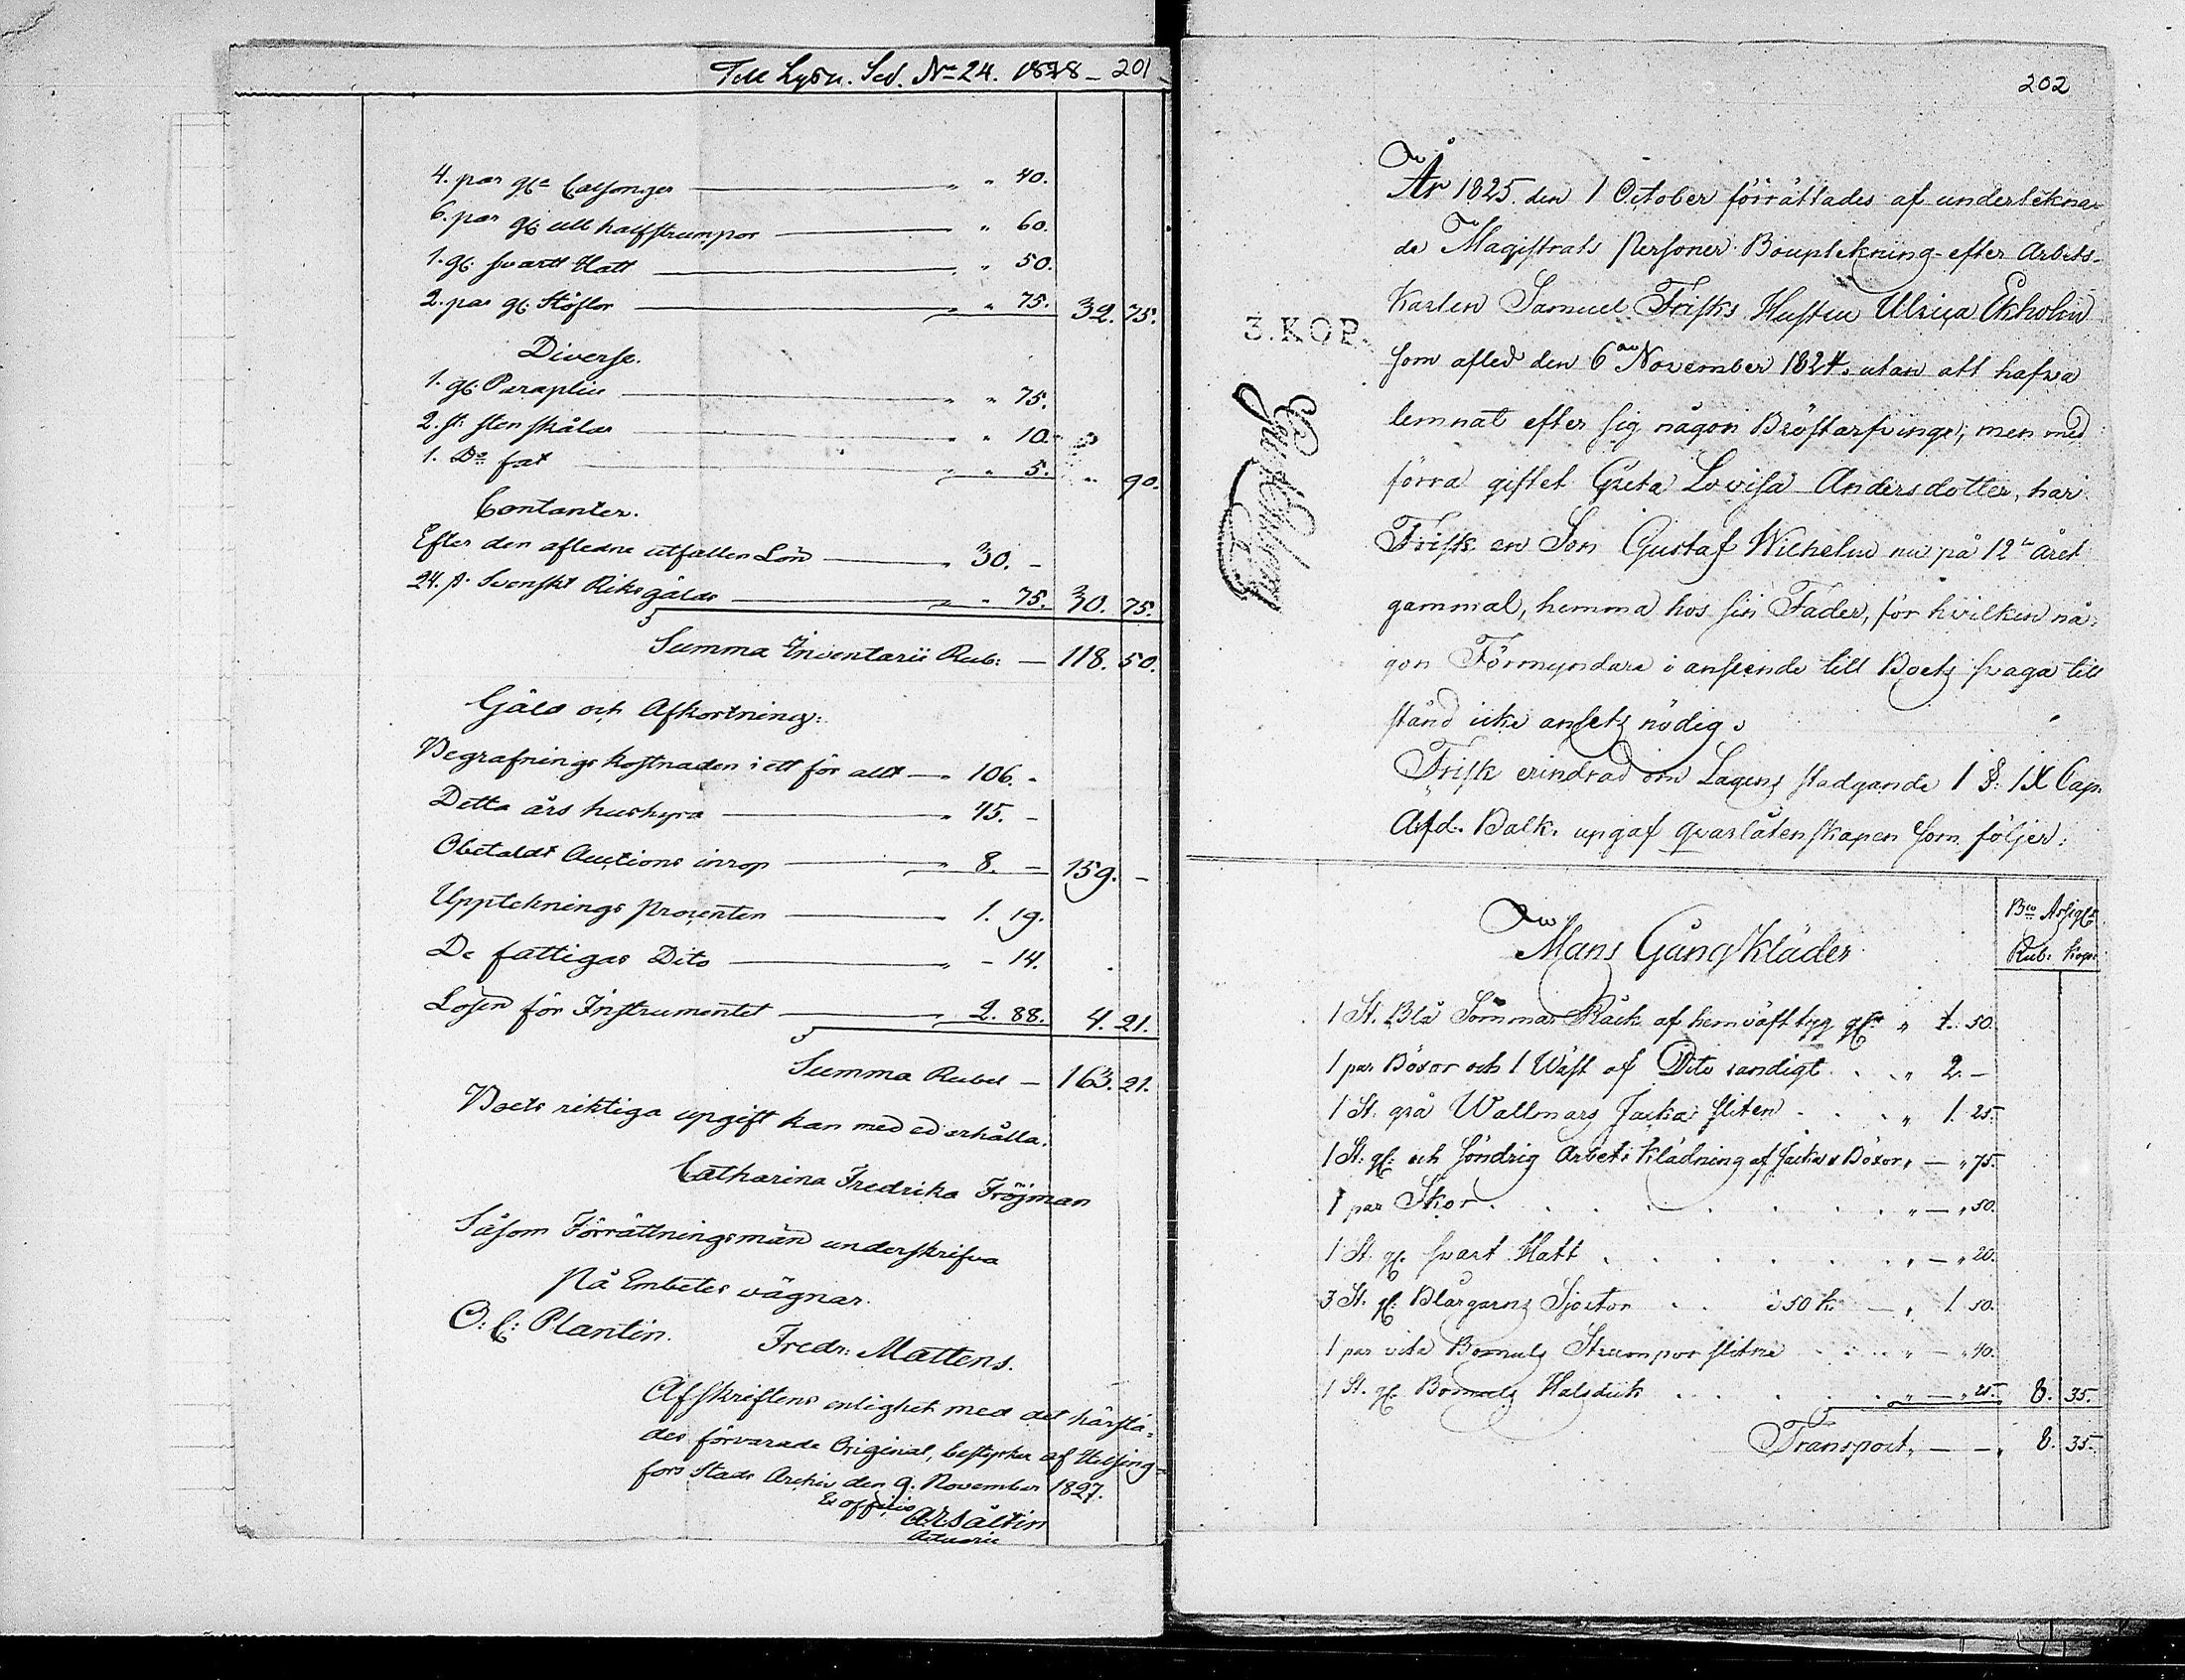 Till Lysn. Sed. No 24. 1828 – 201
4. par gle Calsonger " " 40.
6. par gl: ull halfstrumpor " 60.
1. gl: svartt Hatt " 50.
2. par gl: Stöflor " " 75. 32. 75.
Diverse.
1. gl: Paraplui " " 75.
2. st: sten skålar " 10.
1. Do fat " " 5. " 90.
Contanter.
Efter den aflednes utfallen Lön " 30. –
24. s. Svenskt Riksgälds " " 75. 30. 75.
Summa Inventarii Rub: – 118. 50.
Gäld och Afkortning:
Begrafnings kostnaden i ett för allt – " 106. "
Detta års hushyra " 45. –
Obetaldt Auctions inrop " 8. – 159. –
Upptecknings procenten 1. 19.
De fattigas Dito " – 14.
Lösen för Instrumentet " 2. 88. 4. 21.
Summa Rubel – 163. 21.
Boets riktiga upgift kan med ed erhålla.
Catharina Fredrika Fröjman
Såsom Förrättningsmän underskrifva
På Embetes vägnar.
O: C: Plantin. Fredr: Mattens.
Afskriftens enlighet med det härstä-
des förvarade Original, bestyrker af Helsing-
fors Stads Archiv den 9. November 1827.
Ex officio
Actuarie
202
År 1825. den 1 October förrättades af underteckna-
de Magistrats Personer Bouptekning efter Arbets-
Karlen Samuel Frisks Hustru Ulrica Ekholm
som afled den 6 November 1824. utan att hafva
lemnat efter sig någon Bröstarfvinge; men med
förra giftet Greta Lovisa Andersdotter, har
3. KOP.
Frisk en Son Gustaf Wilhelm nu på 12te året
gammal, hemma hos sin Fader, för hvilken nå-
gon Förmyndare i anseende till Boets svaga till
stånd icke ansetz nödig.
Frisk erindrad om Lagens stadgande 1 §: IX Cap.
Ärfd. Balk. upgaf qvarlåtenskapen som följer:
Bco Assigter
Rub: Kop:
Mans Gångkläder
1 St. Blå Sommar Råck af hemväft tyg gl: " 1. 50.
1 par Böxor och 1 Wäst af Dito randigt . . " 2. –
1 St. grå Wallmars Jacka sliten . . . " 1. 25.
1 St. gl: och söndrig Arbets Klädning af Jacka & Böxor " – " 75.
1 par Skor . . . . . . . " – " 50.
1 St. gl. svart Hatt . . . . . . " – " 20.
3 St. gl: Blårgarns Sjortor . . à 50 k. – " 1. 50.
1 par vita Bomuls Strumpor slitne . . . . " – " 40.
1 St. gl: Bomuls Halsduk . . . . . " – " 25. 8. 35.
Transport, – – " 8. 35.